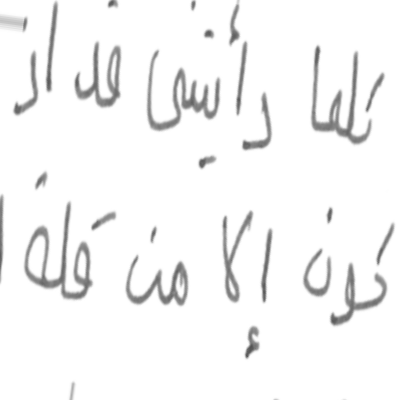 كلما رأيتني قد ار
كون إلا من قلة